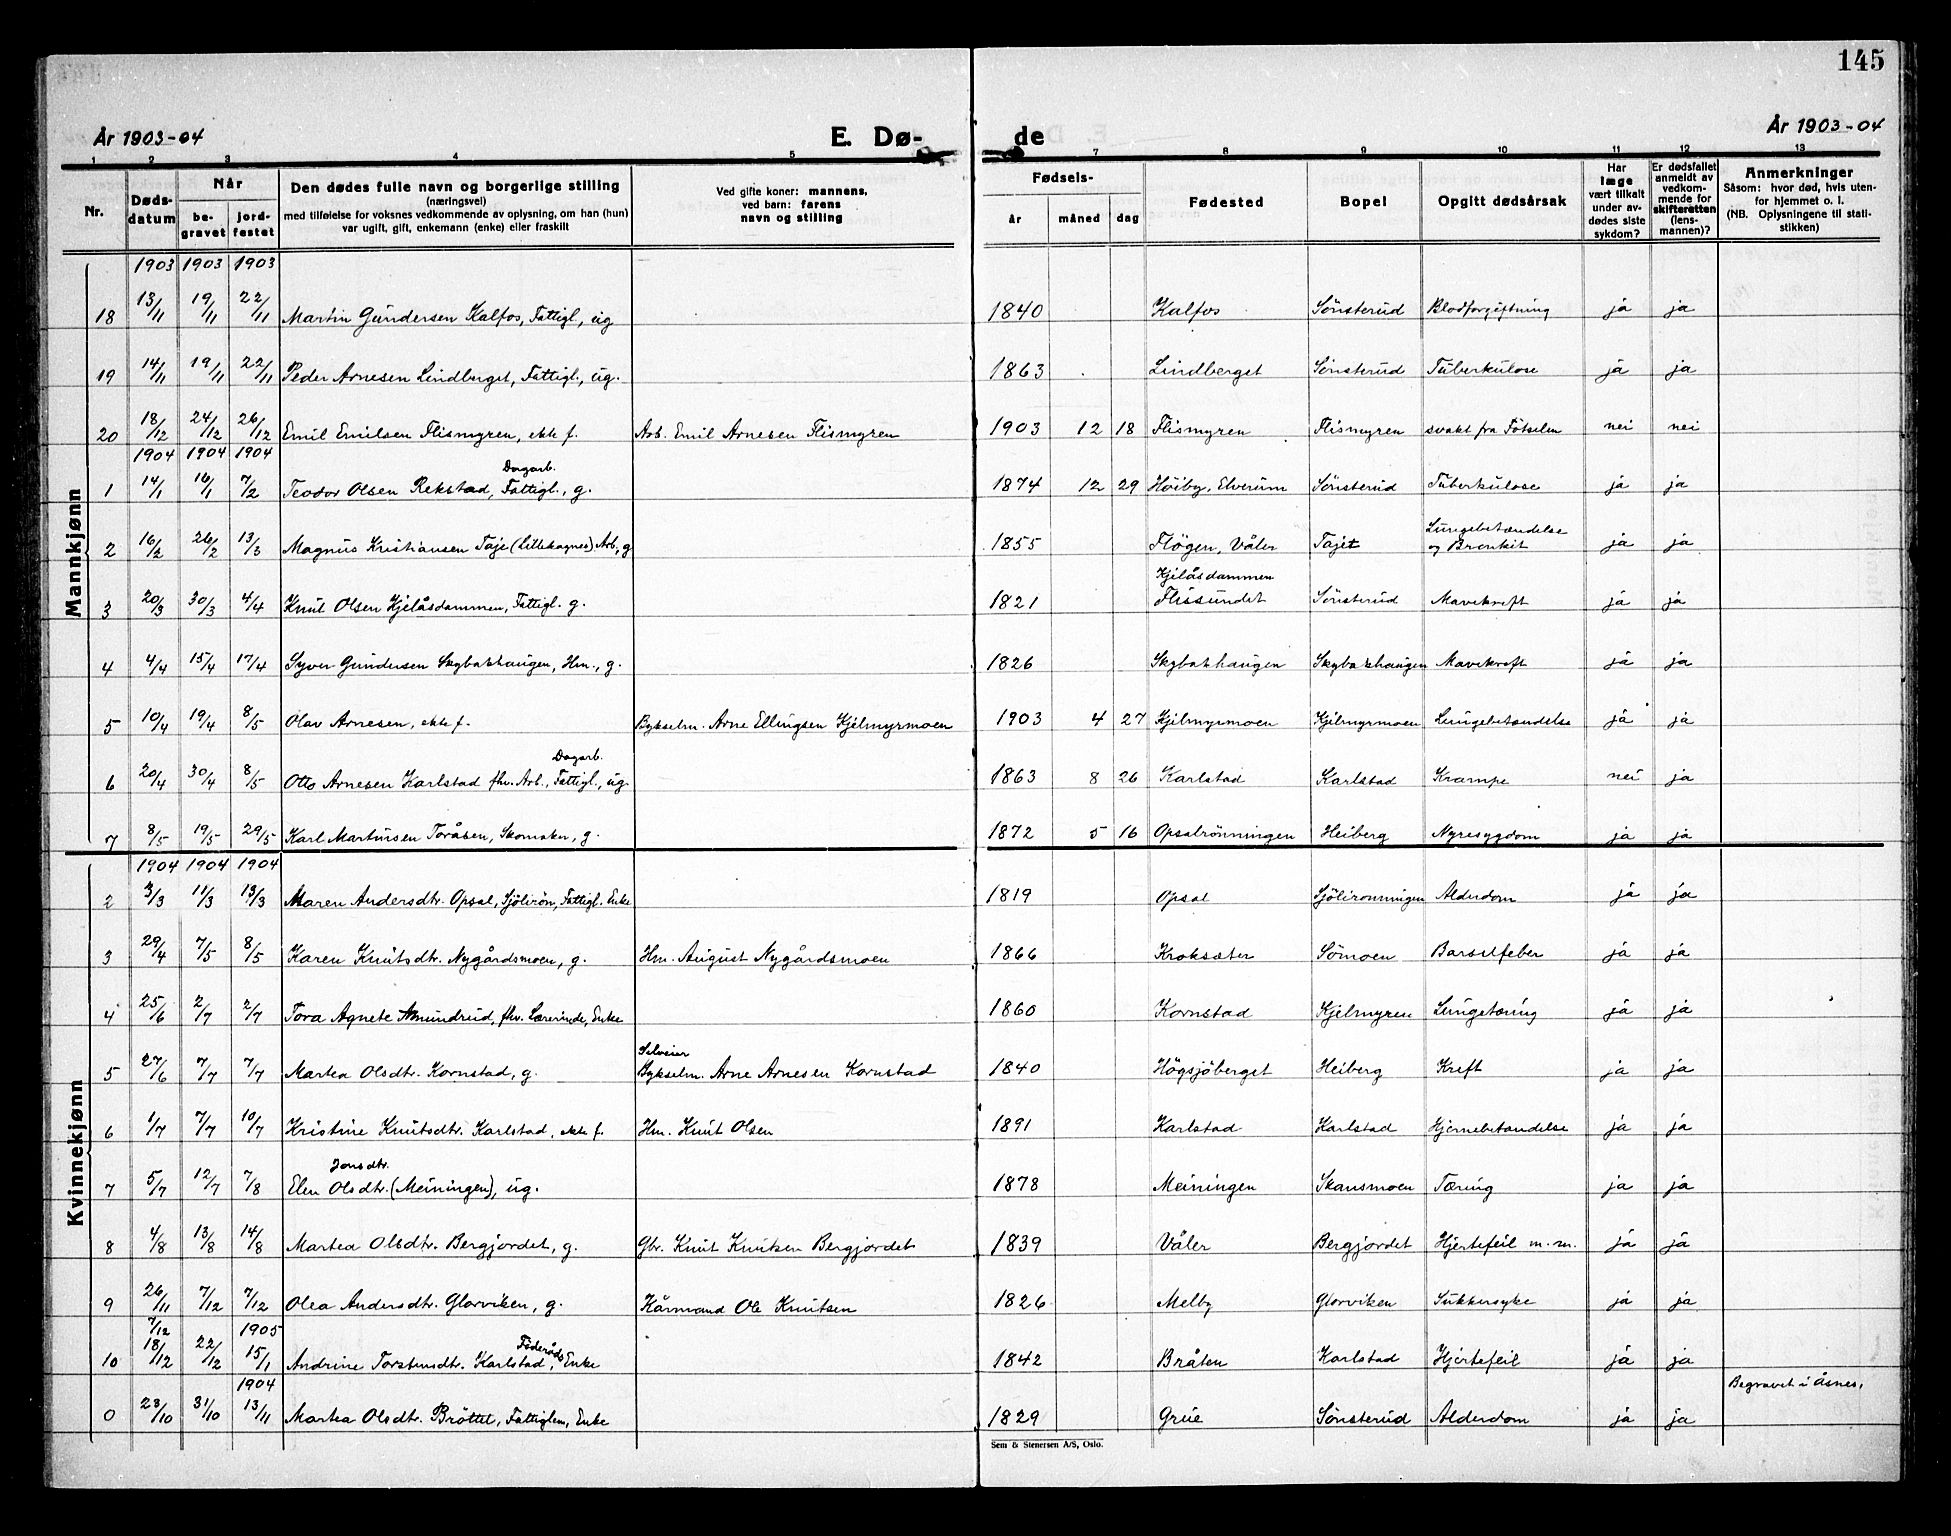 145
År 1903-04 E. Dø- de År 1903-04
1 2 3 4 5 7 8 9 10 11 12 13
Nr. Døds-datum Når be-gravet jord-festet Den dødes fulle navn og borgerlige stilling (næringsvei) med tilføielse for voksnes vedkommende av oplysning, om han (hun) var ugift, gift, enkemann (enke) eller fraskilt Ved gifte koner: mannens, ved barn: farens navn og stilling Fødsels- år måned dag Fødested Bopel Opgitt dødsårsak Har læge vært tilkalt under av-dødes siste sykdom? Er dødsfallet anmeldt av vedkom-mende for skifteretten (lens-mannen)? Anmerkninger Såsom: hvor død, hvis uten-for hjemmet o. l. (NB. Oplysningene til stati-stikken)
Mannkjønn
1903 1903 1903
18 13/11 19/11 22/11 Martin Gundersen Kalfos, Fattigl, ug 1840 Kalfos Sönsterud Blodforgiftning ja ja
19 14/11 19/11 22/11 Peder Arnesen Lindberget, Fattigl., ug. 1863 Lindberget Sönsterud Tuberkulose ja ja
20 18/12 24/12 26/12 Emil Emilsen Flismyren, ekte f. Arb. Emil Arnesen Flismyren 1903 12 18 Flismyren Flismyren svakt fra Fötselen nei nei
1904 1904 1904
Dagarb.
1 14/1 16/1 7/2 Teodor Olsen Rekstad, Fattigl., g. 1874 12 29 Höiby, Elverum Sönsterud Tuberkulose ja ja
Lungebetændelse
2 16/2 26/2 13/3 Magnus Kristiansen Taje (Lillehagnes) Arb, g 1855 Flögen, Våler Tajet og Bronkit ja ja
Kjelåsdammen
3 20/3 30/3 4/4 Knut Olsen Kjelåsdammen, Fattigl. g. 1821 Flissundet Sönsterud Mavekreft ja ja
4 4/4 15/4 17/4 Syver Gundersen Skybakhaugen, Hm., g. 1826 Skybakhaugen Skybakhaugen Mavekreft ja ja
5 10/4 19/4 8/5 Olav Arnesen, ekte f. Bykselm. Arne Ellingsen Kjelmyrmoen 1903 4 27 Kjelmyrmoen Kjelmyrmoen Lungebetændelse ja ja
Dagarb.
6 20/4 30/4 8/5 Otto Arnesen Karlstad fhv. Arb., Fattigl., ug. 1863 8 26 Karlstad Karlstad Krampe nei ja
7 8/5 19/5 29/5 Karl Martinsen Toråsen, Skomaker, g. 1872 5 16 Opsalrönningen Heiberg Nyresygdom ja ja
Kvinnekjønn
1904 1904 1904
2 3/3 11/3 13/3 Maren Andersdtr. Opsal, Sjölirön, Fattigl. Enke 1819 Opsal Sjölironningen Alderdom ja ja
3 29/4 7/5 8/5 Karen Knutsdtr. Nygårdsmoen, g. Hm. August Nygårdsmoen 1866 Kroksæter Sömoen Barselfeber ja ja
4 25/6 2/7 2/7 Tora Agnete Amundrud, fhv. Lærerinde, Enke 1860 Kornstad Kjelmyren Lungetæring ja ja
Selveier
5 27/6 7/7 7/7 Martea Olsdtr. Kornstad, g. Bykselm. Arne Arnesen Kornstad 1840 Högsjöberget Heiberg Kreft ja ja
6 1/7 7/7 10/7 Kristine Knutsdtr. Karlstad, ekte f. Hm. Knut Olsen 1891 Karlstad Karlstad Hjernebetændelse ja ja
Jonsdtr.
7 5/7 12/7 7/8 Elen Olsdtr. (Meiningen), ug. 1878 Meiningen Skansmoen Tæring ja ja
8 4/8 13/8 14/8 Martea Olsdtr. Bergjordet, g. Gbr. Knut Knutsen Bergjordet 1839 Våler Bergjordet Hjertefeil m.m. ja ja
9 26/11 7/12 7/12 Olea Andersdtr. Glorviken, g. Kårmand Ole Knutsen 1826 Melby Glorviken Sukkersyke ja ja
7/12 1905
Föderåds
10 18/12 22/12 15/1 Andrine Torstensdtr. Karlstad, Enke 1842 Bråten Karlstad Hjertefeil ja ja
1904 Begravet i Åsnes,
0 23/10 31/10 13/11 Martea Olsdtr. Bröttet, Fattiglem, Enke 1829 Grue Sönsterud Alderdom ja ja
Sem & Stenersen A/S, Oslo.